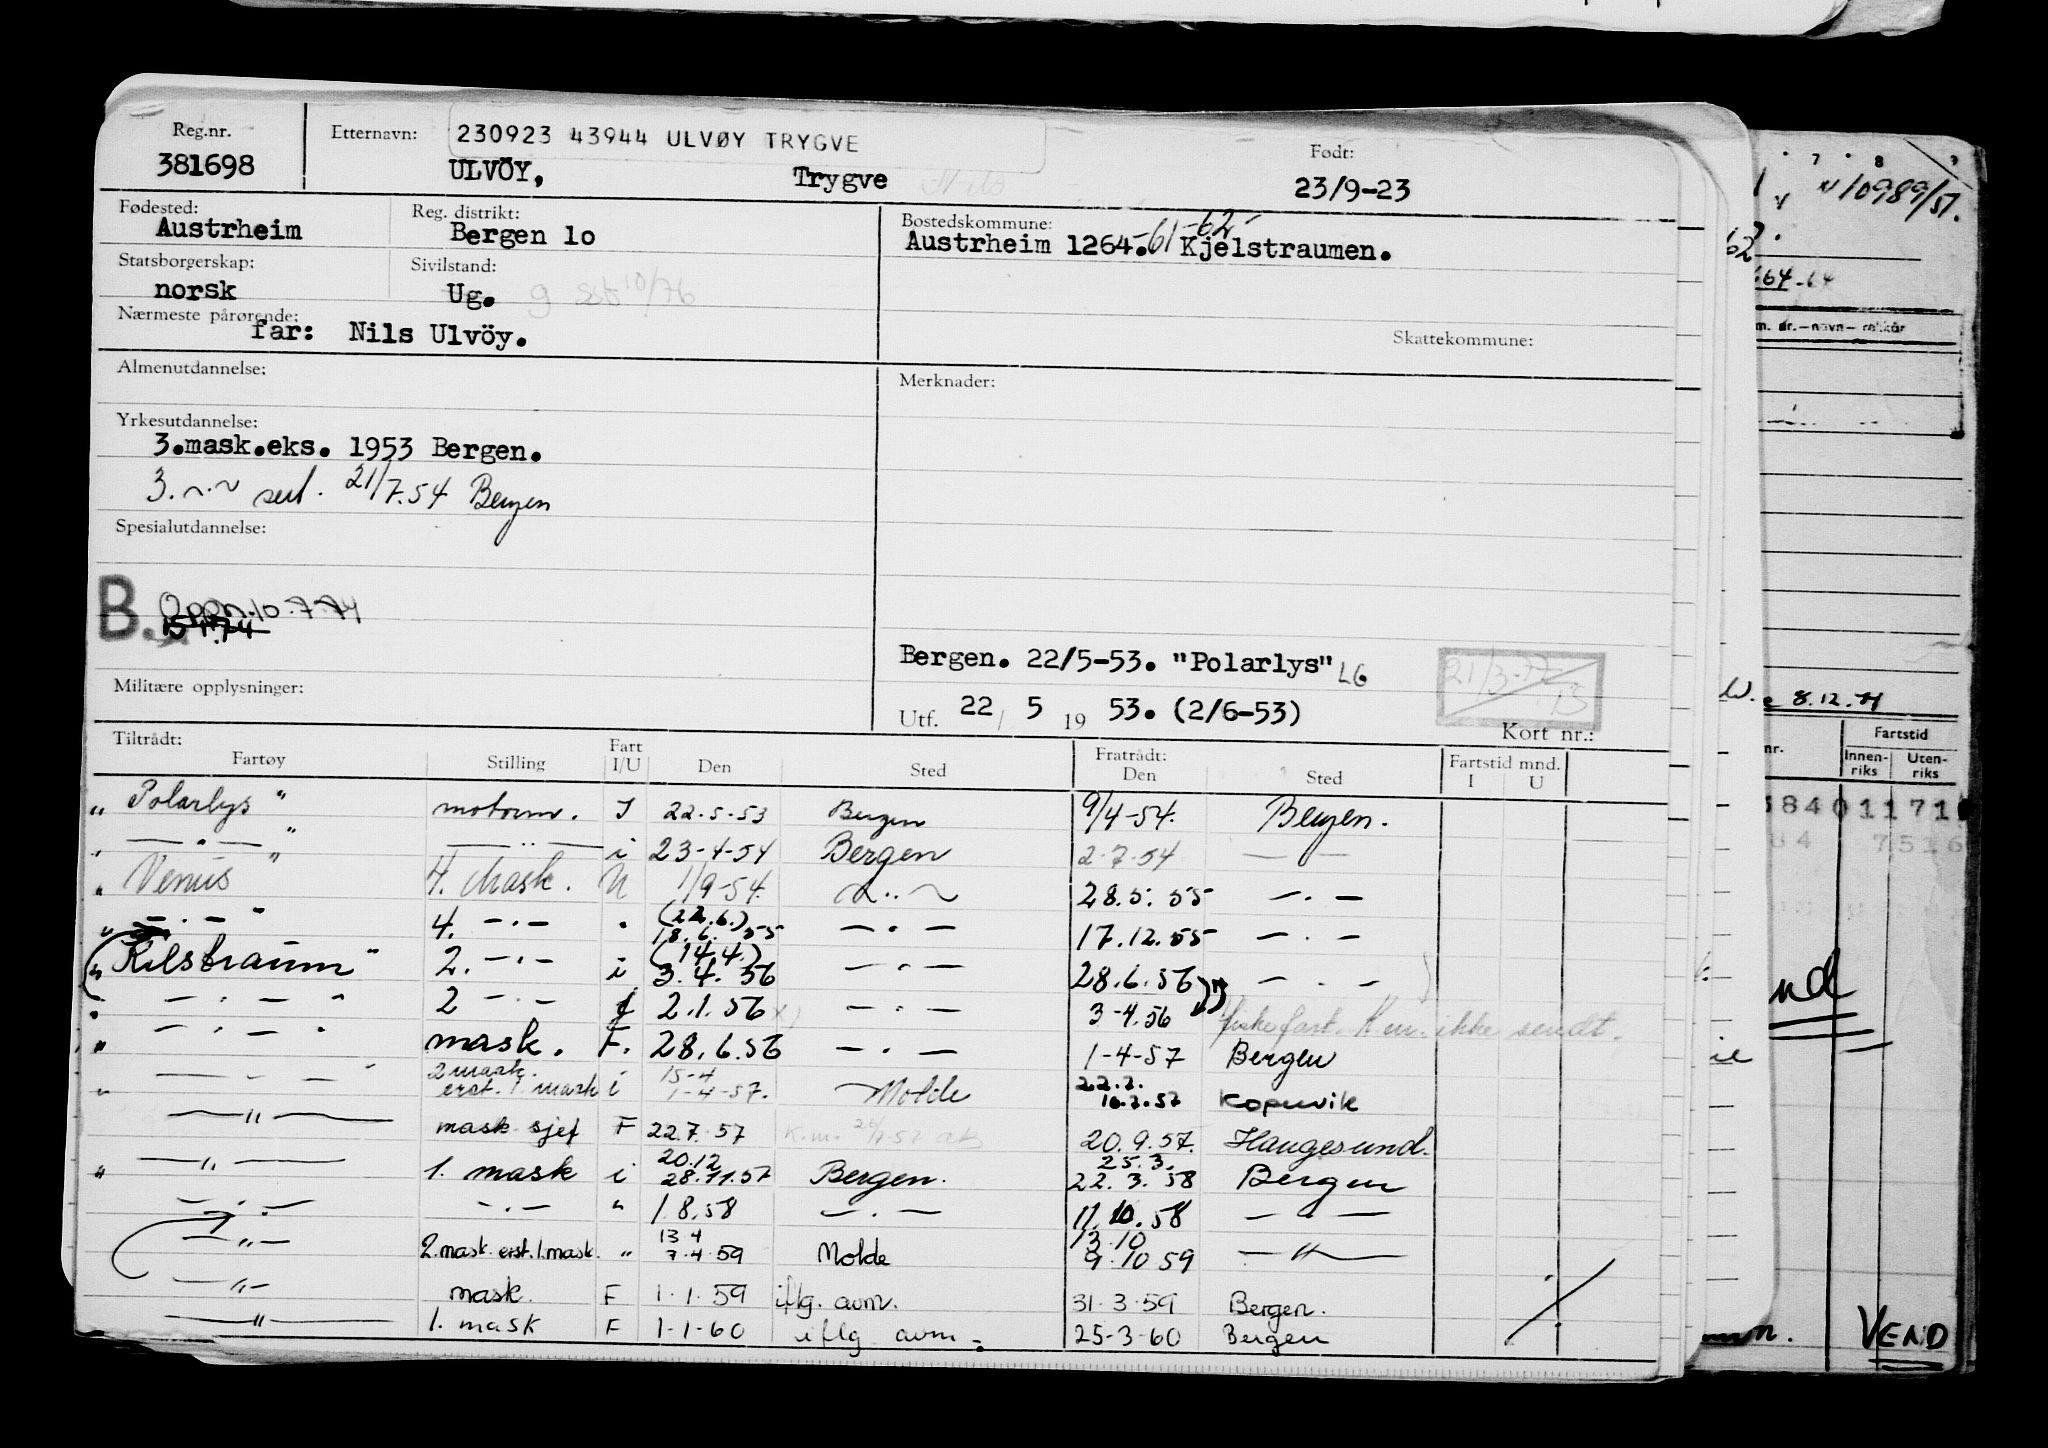 Reg.nr. Etternavn: 230923 43944 ULVØY TRYGVE Født:
381698 ULVÖY, Trygve Nils 23/9-23
Fødested: Reg. distrikt: Bostedskommune:
Austrheim Bergen 1o Austrheim 1264.-61-62- Kjelstraumen.
Statsborgerskap: Sivilstand:
norsk Ug. g 10/76
Nærmeste pårørende:
far: Nils Ulvöy. Skattekommune:
Almenutdannelse: Merknader:
Yrkesutdannelse:
3.mask.eks. 1953 Bergen.
3. sert. 21/7.54 Bergen
Spesialutdannelse:
B. Oppn. 10.7.74
Bergen. 22/5-53. "Polarlys" LG
21/3-77
Militære opplysninger: Utf. 22/ 5 19 53. (2/6-53)
Kort nr.:
Tiltrådt: Fart Fratrådt: Fartstid mnd.
Fartøy Stilling I/U Den Sted Den Sted I U
" Polarlys " motorm. I 22.5.53 Bergen 9/4-54. Bergen.
" — . — " — .. — i 23-4-54 Bergen 2-7-54 — —
" Venus " 4. Mask. U 1/9-54. 28.5.55 — . —
" — . — " 4. — . — " (22.6.) 18.6.55 — . — 17.12.55 — . —
" Kilstraum " 2. — . — i (14.4.) 3.4.56 — . — 28.6.56 — . —
" — . — " 2 — . — f 2.1.56 x) — . — 3-4.56 fiskefart. K.m. ikke sendt.
" — . — " mask. F. 28.6.56 — . — 1-4-57 Bergen
" — . — 2 mask. erst. 1. mask i 15-4 1-4-57. Molde 22.7. 16.7.57 Kopervik
— " — mask sjef F 22.7.57 K.m. 20.9.57. Haugesund.
" — " — 1. mask i 20.12 28.11.57 Bergen. 25.3. 22.3.58 Bergen
— . — — . — " 1.8.58 — . — 11.10.58 — . —
— " — 2. mask erst. 1. mask. " 13 4 7.4.59 Molde 13.10 9.10 59 — " —
— " — mask. F 1.1.59 iflg. avm. 31.3.59 Bergen.
— " — 1. mask F 1-1-60 iflg avm. 25-3-60 Bergen
7 8
10989/51.
62
664-64
8.12.71
Fartstid
nr. Innen-riks Uten-riks
84011710
84 7516
VEND